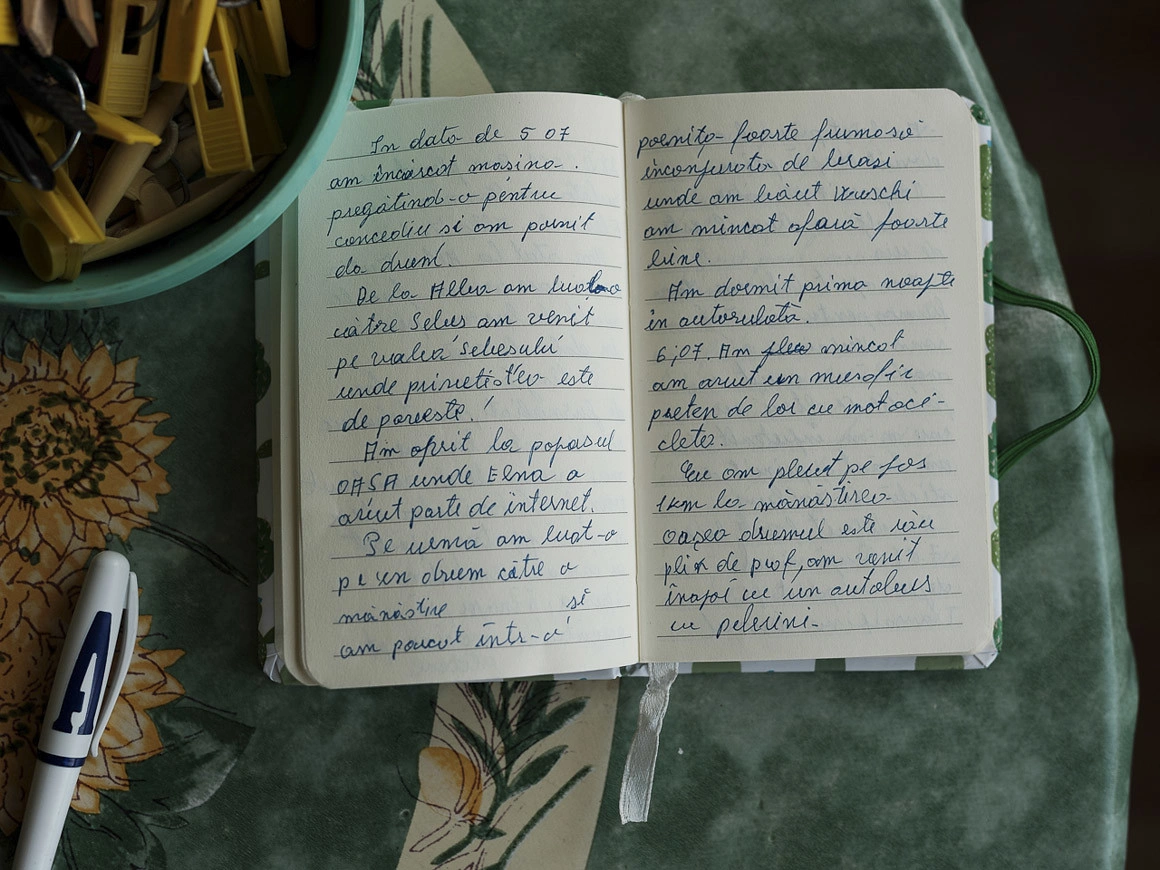 In data de 5 07
am încărcat masina.
pregătind-o pentru
concediu si am pornit
la drum.
De la Alba am luat
către Sebes am venit
pe valea Sebesului
unde priveliștea este
de poveste.
Am oprit la popasul
OASA unde Elena a
avut parte de internet.
Pe urmă am luat-o
pe un drum către o
mănăstire si
am parcat într-o
poenița foarte frumosă
inconjurata de brazi
unde am băut
am mincat afară foarte
bine.
Am dormit prima noapte
in autorulota.
6;07. Am mincat
am avut un musafir
prieten de lor cu motoci-
cleta.
Eu am plecat pe jos
1km la mănăstirea
oașa drumul este rău
plin de praf, am venit
înapoi cu un autobus
cu pelerini-
A